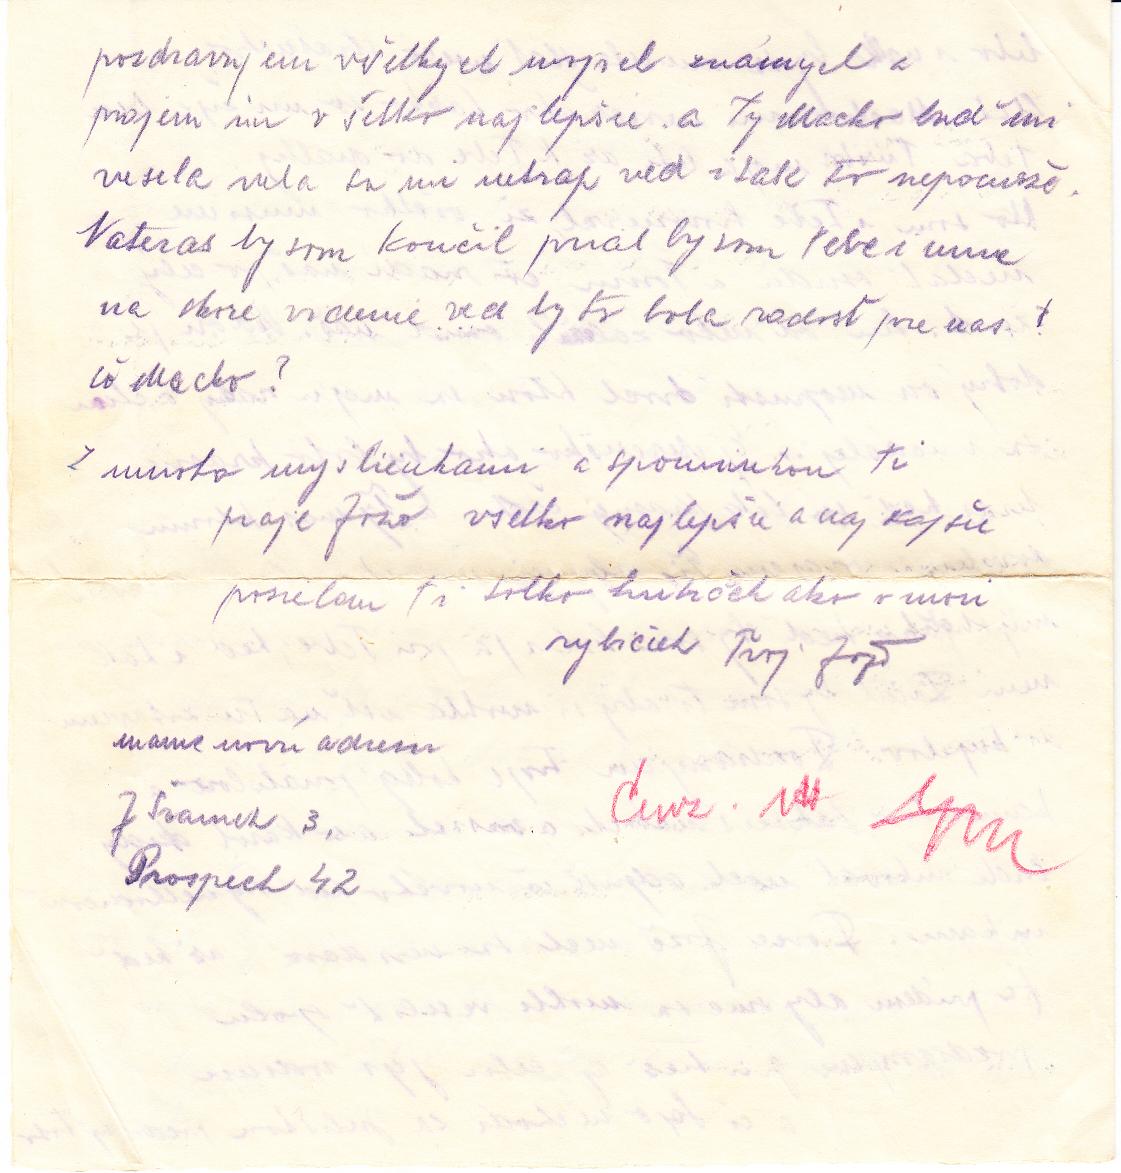 pozdravujem všetkych mojich známych a
prajem im všetko najlepšie a Ty Macko bud mi
vesela vela sa mi netrap ved i tak to nepomože.
Nateras by som končil prial by som Tebe i mne
na skore videnie ved by to bola radost pre nas!
čo Macko?
Z myslienkami a spomienkou ti
praje Jožo všetko najlepšie a naj
posielam ti tolko ako v mori
rybičiek Tvoj Jožo
mame novú adresu
J Šramek 3,
Prospech 42